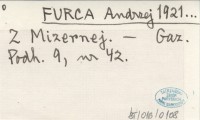 FURCA Andrzej 1921...
Z Mizernej. — Gaz.
Podh. 9, nr 42.